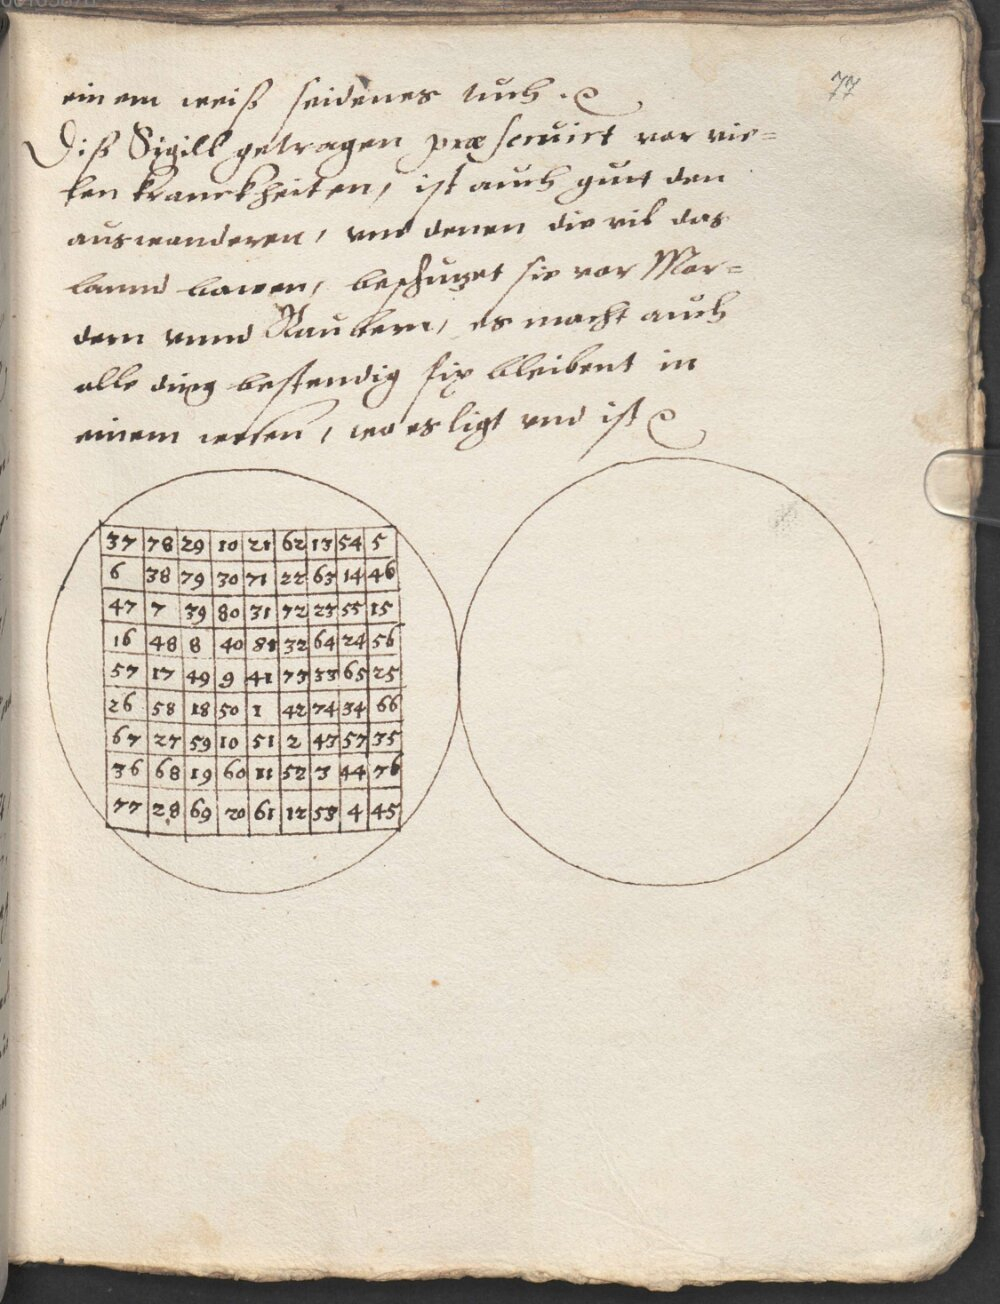 77
einem weiß seidenes tuch.
Diß Sigill getragen præseruirt vor vie=
len kranckheiten, ist auch gutt den
auswanderen, vnd denen die vil das
lannd bawen, beschutzet sie vor Mor=
dern vnnd Raubern, es macht auch
alle ding bestendig fix bleibent in
einem wesen, wo es ligt vnd ist
37 78 29 10 21 62 13 54 5
6 38 79 30 71 22 63 14 46
47 7 39 80 31 72 23 55 15
16 48 8 40 81 32 64 24 56
57 17 49 9 41 73 33 65 25
26 58 18 50 1 42 74 34 66
67 27 59 10 51 2 43 57 35
36 68 19 60 11 52 3 44 76
77 28 69 20 61 12 53 4 45